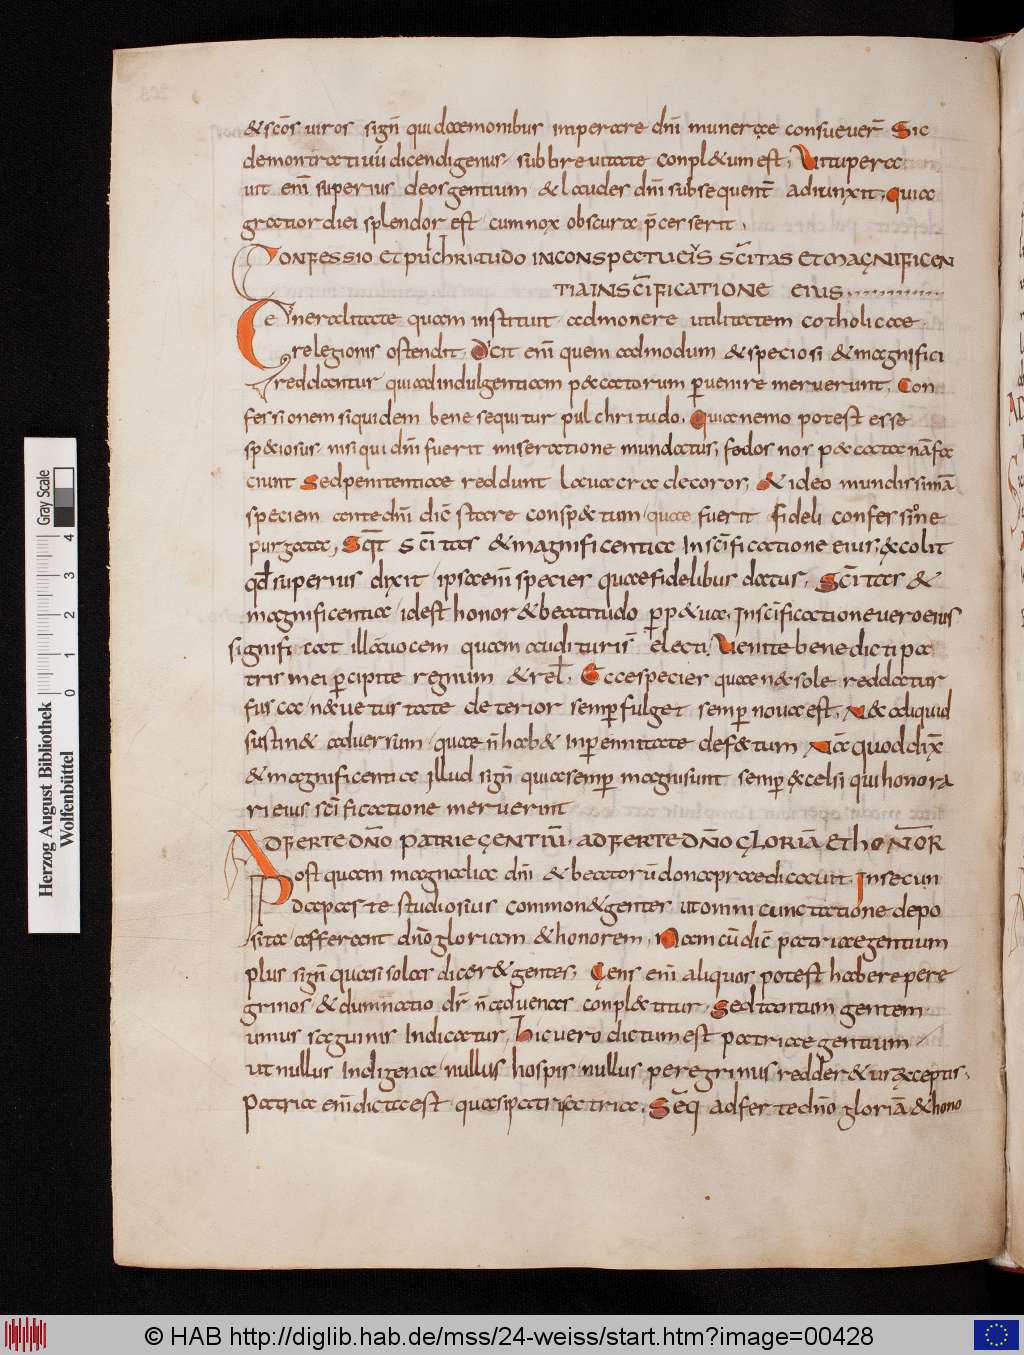 & scōs uiros signt̄ qui daemonibus imperare dn̄i munerae consueuer̄ Sic
demonstratiuū dicendi genus subbreuitate conpl&um est, Uitupera
uit enī superius deos gentium & laudes dn̄i subsequent̄ adiunxit. Quia
gratior diei splendor est cum nox obscura p̄cesserit.
CONFESSIO ET PULCHRITUDO IN CONSPECTU EIUS SC̄ITAS ET MAGNIFICEN
TIA IN SC̄IFICATIONE EIUS
Generalitate quam instituit admonere utilitatem catholicae
relegionis ostendit. Dicit enī quem admodum & speciosi & magnifici
reddantur qui ad indulgentiam peccatorum peruenire meruerunt. Con
fessionem siquidem bene sequitur pulchritudo. Quia nemo potest esse
sp&iosus nisi qui dn̄i fuerit miseratione mundatus, fedos nos peccata nā fa
ciunt Sed penitentiae reddunt lauacra decoros, & ideo mundissimā
speciem ante dn̄i dic̄ stare consp&tum quae fuerit fideli confessione
purgata, Sqt̄ Sc̄itas & magnificentia In sc̄ificatione eius, & colit
qd̄ superius dixit ipsa enī species quae fidelibus datus, Sc̄itas &
magnificentia id est honor & beatitudo perp&ua, In sc̄ificatione uero eius
significat illā uocem quam audituri s̄ electi. Uenite benedicti pa
tris mei percipite regnum & rel̄. Ecce species quae n& sole reddatur
fusca n& uetustate deterior semper fulget semper noua est, N& aliquid
sustin& aduersum quae n̄ hab& In perennitate def&tum Nā quod dix̄
& magnificentia Illud signt̄ quia semper magni sunt semper excelsi qui honora
ri eius sc̄ificatione meruerint
ADFERTE DN̄O PATRIE GENTIŪ. ADFERTE DN̄O GLORIĀ ET HONOR
Post quam magnalia dn̄i & beatorū dona praedicauit. In secun
da parte studiosius common& gentes ut omni cunctatione depo
sita afferant dn̄o gloriam & honorem, Nam cū dic̄ patriae gentium
plus signt̄ quasi solas dicer& gentes. Gens enī aliquos potest habere pere
grinos & dum natio dr̄ n̄ aduenas conpl&titur. Sed tantum gentem
unius saguinis Indicatur, Hic uero dictum est patriae gentium
ut nullus Indigena nullus hospis nullus peregrinus redder&ur exceptus,
Patria enī dicta est quasi patris atria. Seq̄ adferte dn̄o gloriā & hono
Herzog August Bibliothek
Wolfenbüttel
0 1 2 3 4
Gray Scale
© HAB http://diglib.hab.de/mss/24-weiss/start.htm?image=00428